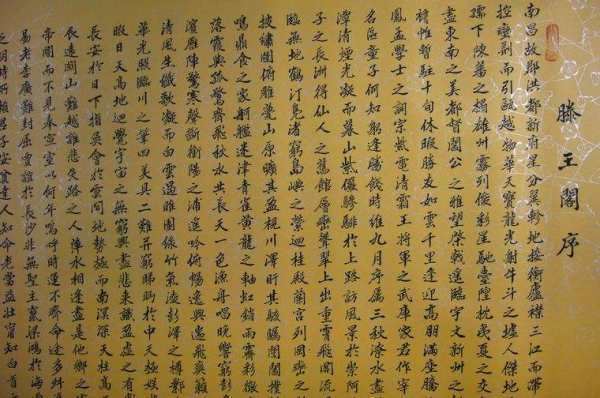 滕王閣序
南昌故郡洪都新府星分翼軫地接衡廬襟三江而帶
控蠻荊而引甌越物華天寶龍光射牛斗之墟人傑地
孺下陳蕃之榻雄州霧列俊彩星馳臺隍枕夷夏之交
盡東南之美都督閻公之雅望棨戟遙臨宇文新州之
襜帷暫駐十旬休暇勝友如雲千里逢迎高朋滿座騰
鳳孟學士之詞宗紫電清霜王將軍之武庫家君作宰
名區童子何知躬逢勝餞時維九月序屬三秋潦水盡
潭清煙光凝而暮山紫儼驂騑於上路訪風景於崇阿
子之長洲得仙人之舊館層巒聳翠上出重霄飛閣流
臨無地鶴汀鳧渚窮島嶼之縈迴桂殿蘭宮列岡巒之
披繡闥俯雕甍山原曠其盈視川澤盱其駭矚閭閻撲
鳴鼎食之家舸艦迷津青雀黃龍之軸虹銷雨霽彩徹
落霞與孤鶩齊飛秋水共長天一色漁舟唱晚響窮彭
濱雁陣驚寒聲斷衡陽之浦遙吟俯暢逸興遄飛爽籟
清風生纖歌凝而白雲遏睢園綠竹氣凌彭澤之樽鄴
華光照臨川之筆四美具二難并窮睇眄於中天極娛
暇日天高地迥覺宇宙之無窮興盡悲來識盈虛之有
長安於日下指吳會於雲間地勢極而南溟深天柱高
辰遠關山難越誰悲失路之人萍水相逢盡是他鄉之
帝閽而不見奉宣室以何年嗚呼時運不齊命途多舛
易老李廣難封屈賈誼於長沙非無聖主竄梁鴻於海
乏明時所賴君子安貧達人知命老當益壯寧知白首